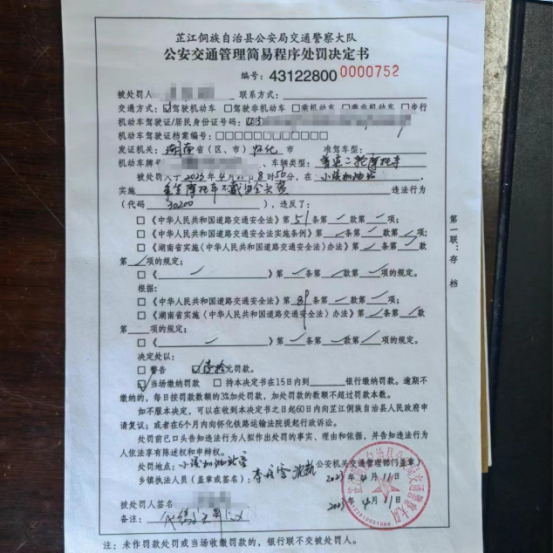 芷江侗族自治县公安局交通警察大队
公安交通管理简易程序处罚决定书
编号：43122800 0000752
被处罚人： 联系方式：
交通方式：☑驾驶机动车 □驾驶非机动车 □乘机动车 □乘非机动车 □步行
机动车驾驶证/居民身份证号码：
机动车驾驶证档案编号：□□□□□□□□□□□□
发证机关：湖南省（区、市）怀化市 准驾车型：
机动车牌号 车辆类型：普通二轮摩托车
被处罚人于2023年4月11日8时50分，在小溪加油站，
实施乘坐摩托车不戴安全头盔违法行为
（代码30200），违反了：
□《中华人民共和国道路交通安全法》第51条第/款第/项；
□《中华人民共和国道路交通安全法实施条例》第/条第/款第/项；
□《湖南省实施〈中华人民共和国道路交通安全法〉办法》第/条第/款
第/项的规定；
□《/》第/条第/款第/项的规定。
根据：
□《中华人民共和国道路交通安全法》第89条第/款第/项；
□《湖南省实施〈中华人民共和国道路交通安全法〉办法》第/条第/款
第/项的规定；
□《/》第/条第/款第/项的规定。
决定处以：
□警告 ☑ 元罚款。
☑当场缴纳罚款 □持本决定书在15日内到 银行缴纳罚款。逾期不
缴纳的，每日按罚款数额的3%加处罚款，加处罚款数额不超过罚款本数。
如不服本决定，可以在收到本决定书之日起60日内向芷江侗族自治县人民政府申
请复议；或者在6个月内向怀化铁路运输法院提起行政诉讼。
处罚前已口头告知违法行为人拟作出处罚的事实、理由和依据，并告知违法行为
人依法享有陈述权和申辩权。
处罚地点：小溪加油站 公安机关交通管理部门（盖章）
乡镇执法人员（盖章或签名）： 2023年4月11日
被处罚人签名 2023年4月11日
备注：
注：未作罚款处罚或当场收缴罚款的，银行联不交被处罚人。
第一联：存档